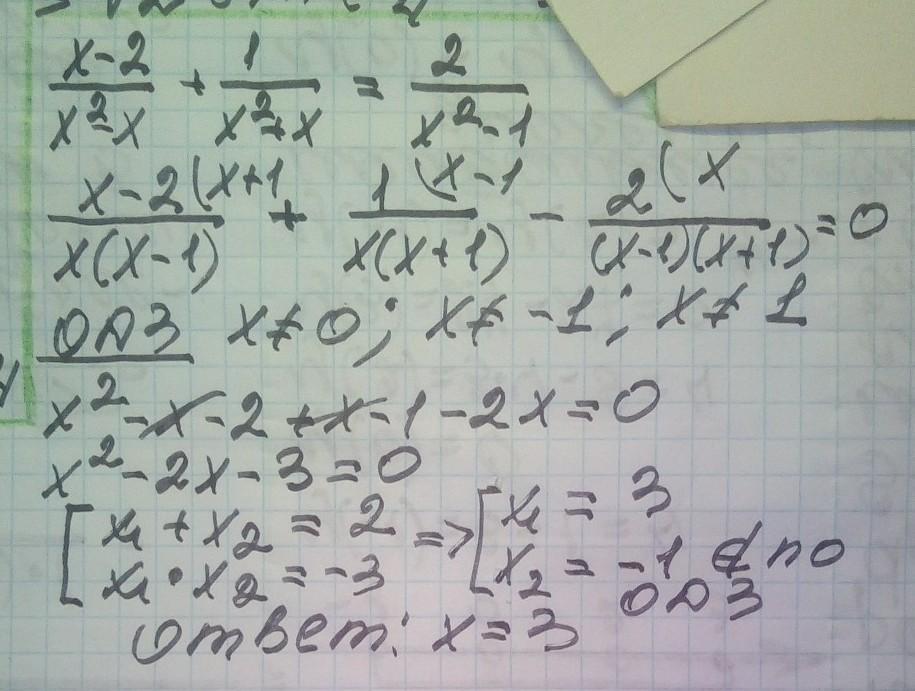 (x-2)/(x²-x) + 1/(x²+x) = 2/(x²-1)
x-2(x+1/x(x-1) + 1(x-1/x(x+1) - 2(x/(x-1)(x+1) = 0
ОДЗ x≠0; x≠-1; x≠1
x²-x-2+x-1-2x=0
x²-2x-3=0
[x₁+x₂=2 => [x₁=3
x₁·x₂=-3 x₂=-1 ∉ по
ОДЗ
Ответ: x=3